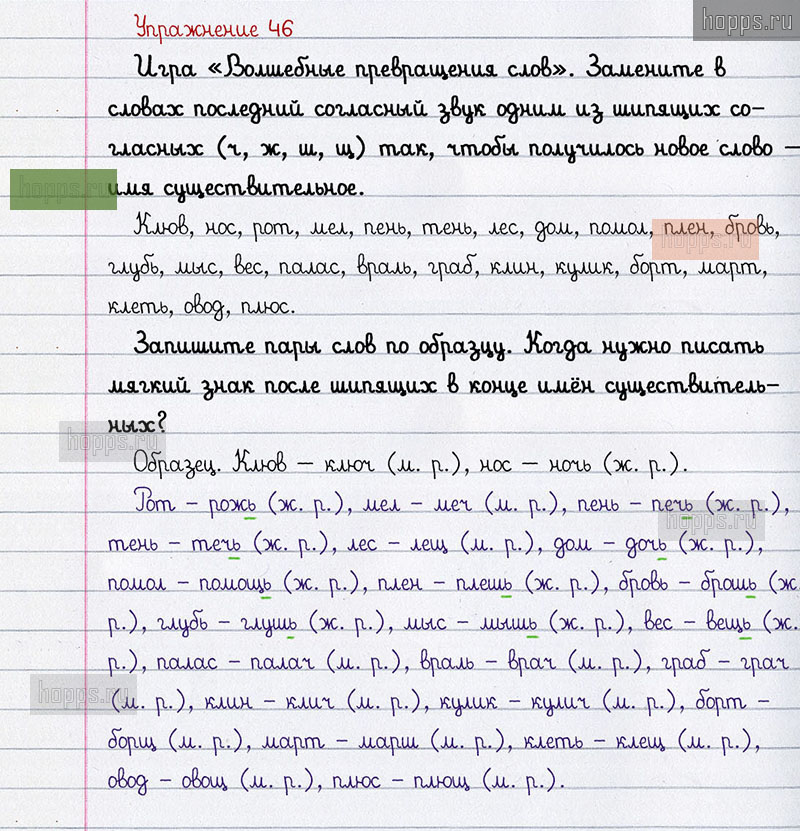 hopps.ru
Упражнение 46
Игра «Волшебные превращения слов». Замените в
словах последний согласный звук одним из шипящих со-
гласных (ч, ж, ш, щ) так, чтобы получилось новое слово –
hopps.ru
имя существительное.
Клюв, нос, рот, мел, пень, тень, лес, дом, помол, плен, бровь,
hopps.ru
глубь, мыс, вес, палас, враль, граб, клин, кулик, борт, март,
клеть, овод, плюс.
Запишите пары слов по образцу. Когда нужно писать
мягкий знак после шипящих в конце имён существитель-
ных?
hopps.ru
Образец. Клюв – ключ (м. р.), нос – ночь (ж. р.).
Рот – рожь (ж. р.), мел – меч (м. р.), пень – печь (ж. р.),
hopps.ru
тень – течь (ж. р.), лес – лещ (м. р.), дом – дочь (ж. р.),
помол – помощь (ж. р.), плен – плешь (ж. р.), бровь – брошь (ж.
р.), глубь – глушь (ж. р.), мыс – мышь (ж. р.), вес – вещь (ж.
р.), палас – палач (м. р.), враль – врач (м. р.), граб – грач
hopps.ru
(м. р.), клин – клич (м. р.), кулик – кулич (м. р.), борт –
борщ (м. р.), март – марш (м. р.), клеть – клещ (м. р.),
овод – овощ (м. р.), плюс – плющ (м. р.).